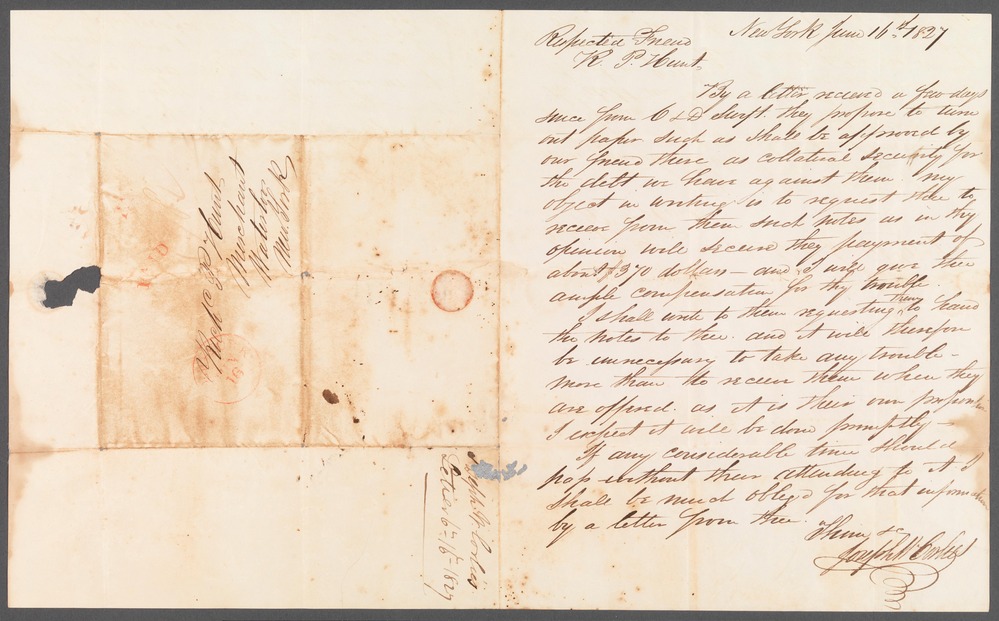 New York June 16th 1827
Respected Friend
R. P. Hunt,
By a letter received a few days
since from C & D Swift. they propose to turn
out paper such as shall be approved by
our friend there as collateral security for
the debt we have against them my
object in writing is to request thee to
receive from them such notes as in thy
opinion will secure they payment of
about $370 dollars — and I will give thee
ample compensation for thy trouble.
I shall write to them requesting them to hand
the notes to thee. and it will therefore
be unnecessary to take any trouble —
more than to receive them when they
are offered. as it is their own proposition
I expect it will be done promptly —
If any considerable time should
pass without their attending to it I
shall be much obliged for that information
by a letter from thee.
Thine &c
Joseph W Corlies
Richd P Hunt
Merchant
Waterloo
New York
Joseph W. Corlies
Letter 6 mo 16th 1827